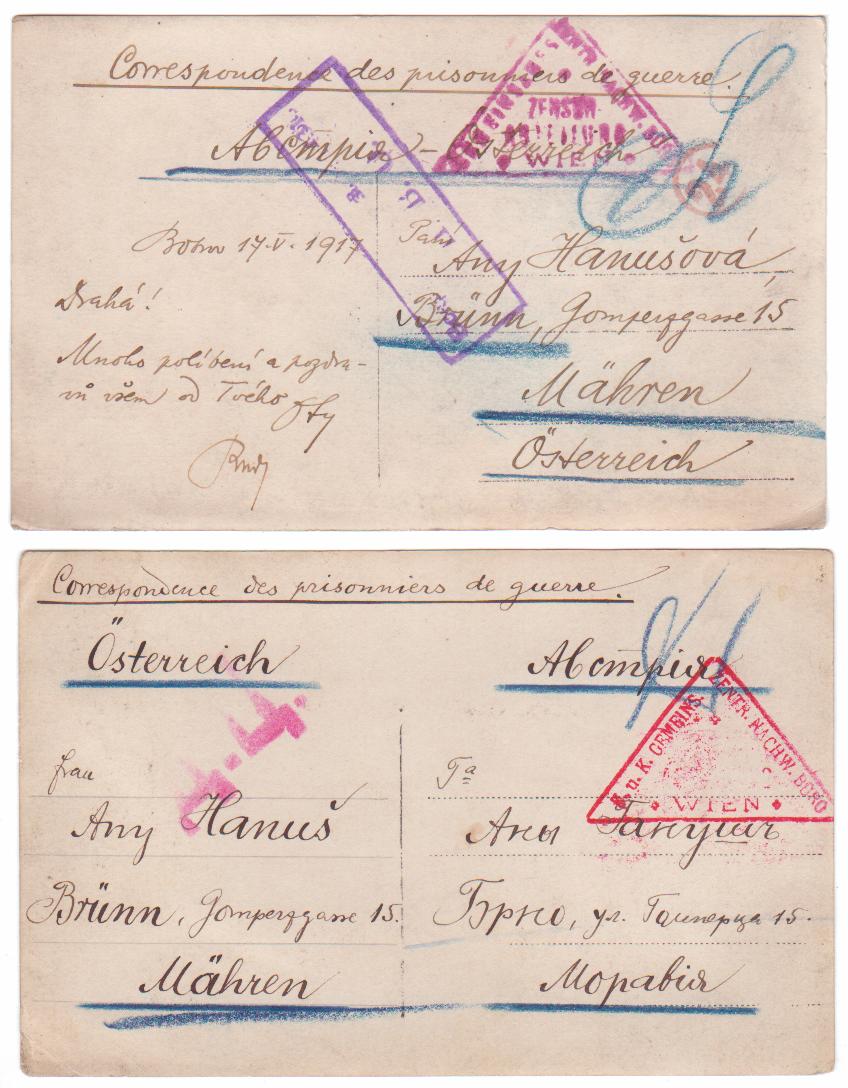 Correspondence des prisonniers de guerre.
Австрія – Österreich.
ZENSUR-
ABTEILUNG
WIEN
17.V. 1917
Drahá!
Mnoho políbení a pozdra-
vů všem od Tvého
Paní
Any Hanušová,
Brünn, Gomperzgasse 15
Mähren
Österreich
Correspondence des prisonniers de guerre.
Österreich
Австрія
K. u. K. GEMEINS. ZENTR. NACHW. BÜRO
WIEN
Frau
Any Hanuš
Brünn, Gomperzgasse 15.
Mähren
Гª
Аны Ганушъ
Брно, ул. Гомперца 15.
Моравія